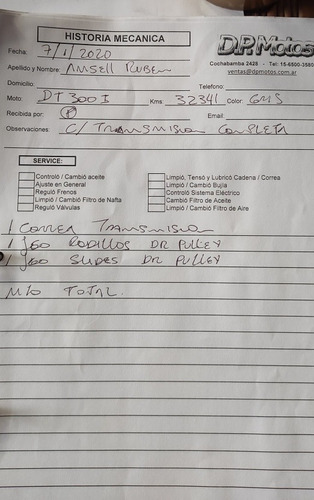 HISTORIA MECANICA
D.P. Motos
Cochabamba 2428 - Tel: 15-6500-3580
ventas@dpmotos.com.ar
Fecha: 7/1/2020
Apellido y Nombre: ANSELL RUBEN
Domicilio: Telefono:
Moto: DT 300 I Kms: 32341 Color: GRIS
Recibida por: P Email:
Observaciones: C/ TRANSMISION COMPLETA
SERVICE:
Controló / Cambió aceite
Ajuste en General
Reguló Frenos
Limpió / Cambió Filtro de Nafta
Reguló Válvulas
Limpió, Tensó y Lubricó Cadena / Correa
Limpió / Cambió Bujía
Controló Sistema Eléctrico
Cambió Filtro de Aceite
Limpió / Cambió Filtro de Aire
1 CORREA TRANSMISION
1 JGO RODILLOS DR PULLEY
1 JGO SLIDES DR PULLEY
M/O TOTAL.